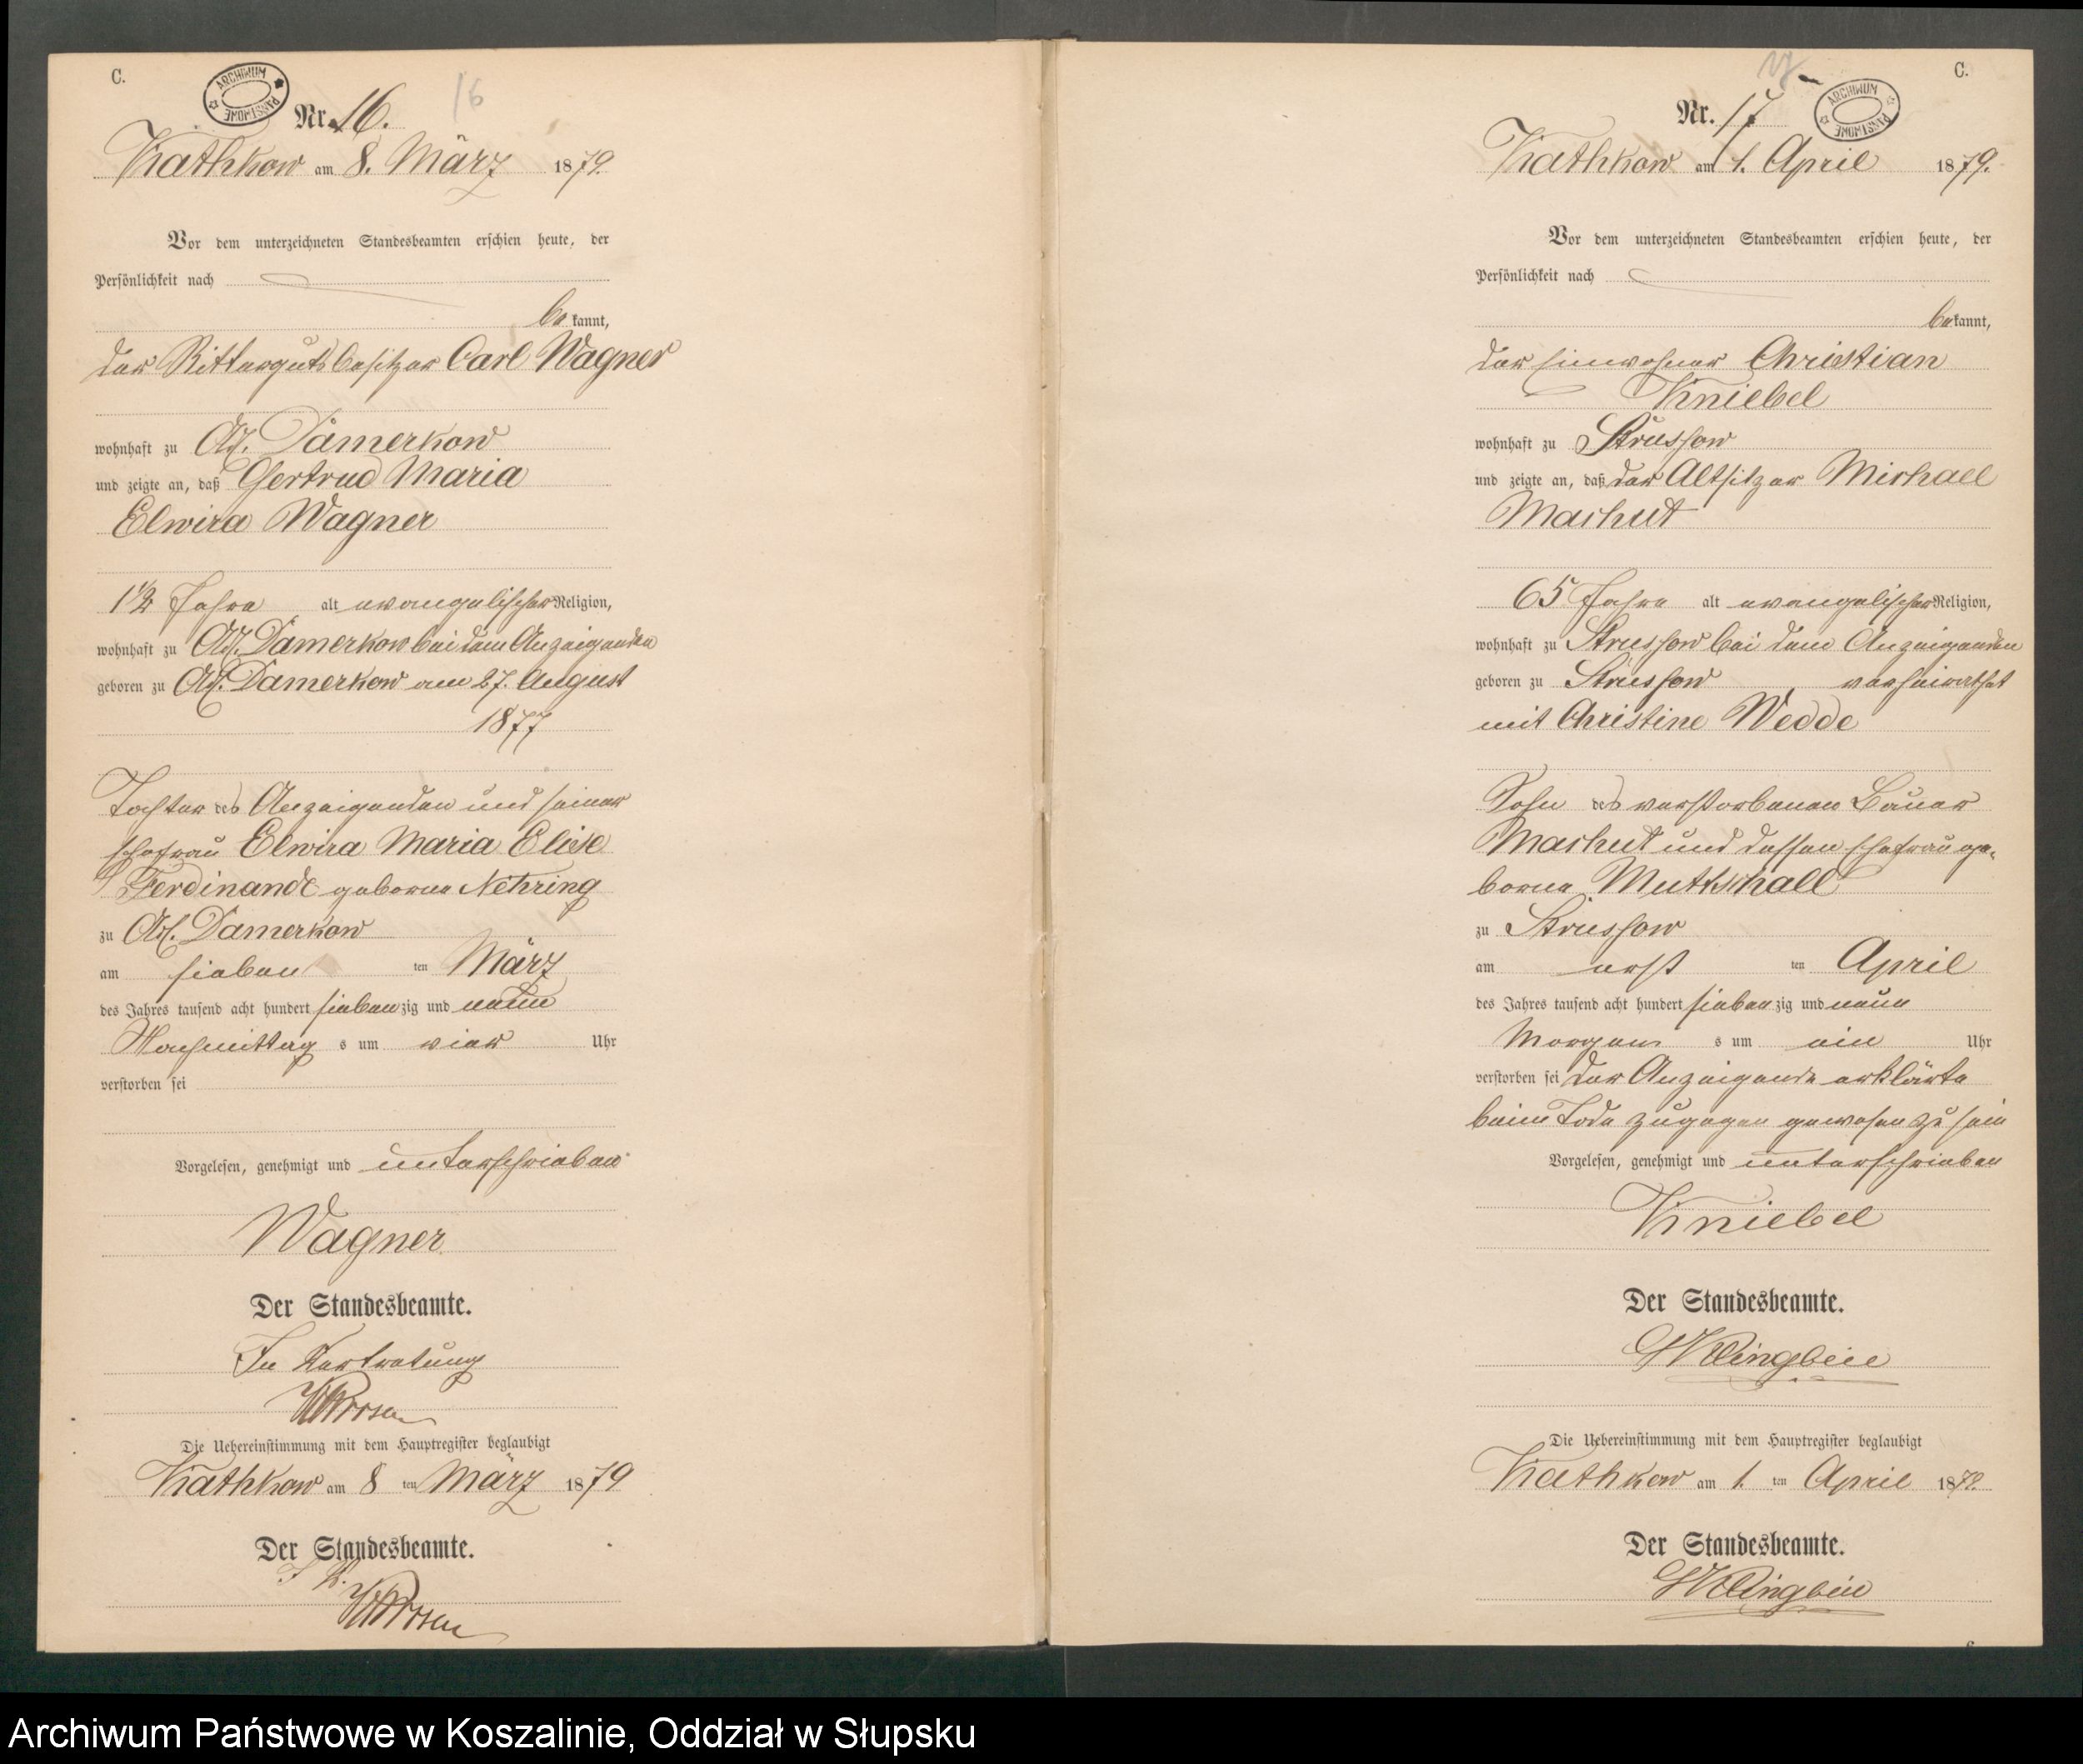 C.
ARCHIWUM PAŃSTWOWE
16
Nr. 16.
Kathkow am 8. März 1879.
Vor dem unterzeichneten Standesbeamten erschien heute, der
Persönlichkeit nach
bekannt,
der Rittergutsbesitzer Carl Wagner
wohnhaft zu Adl. Damerkow
und zeigte an, daß Gertrud Maria
Elwira Wagner
1 1/2 Jahre alt evangelischer Religion,
wohnhaft zu Adl. Damerkow bei dem Anzeigenden
geboren zu Adl. Damerkow am 27. August
1877
Tochter des Anzeigenden und seiner
Ehefrau Elwira Maria Elise
Ferdinande geborne Nehring
zu Adl. Damerkow
am sieben ten März
des Jahres tausend acht hundert siebenzig und neun
Nachmittags um vier Uhr
verstorben sei
Vorgelesen, genehmigt und unterschrieben
Wagner
Der Standesbeamte.
In Vertretung
Die Uebereinstimmung mit dem Hauptregister beglaubigt
Kathkow am 8 ten März 1879
Der Standesbeamte.
I. V.
C.
17
ARCHIWUM PAŃSTWOWE
Nr. 17
Kathkow am 1. April 1879.
Vor dem unterzeichneten Standesbeamten erschien heute, der
Persönlichkeit nach
bekannt,
der Einwohner Christian
Kniebel
wohnhaft zu Strussow
und zeigte an, daß der Altsitzer Michael
Machut
65 Jahre alt evangelischer Religion,
wohnhaft zu Strussow bei dem Anzeigenden
geboren zu Strussow verheirathet
mit Christine Wedde
Sohn des verstorbenen Bauer
Machut und dessen Ehefrau ge-
borne Muttschall
zu Strussow
am erst ten April
des Jahres tausend acht hundert siebenzig und neun
Morgens um ein Uhr
verstorben sei der Anzeigende erklärte
beim Tode zugegen gewesen zu sein
Vorgelesen, genehmigt und unterschrieben
Kniebel
Der Standesbeamte.
Klingbeil
Die Uebereinstimmung mit dem Hauptregister beglaubigt
Kathkow am 1. ten April 1879.
Der Standesbeamte.
Klingbeil
Archiwum Państwowe w Koszalinie, Oddział w Słupsku